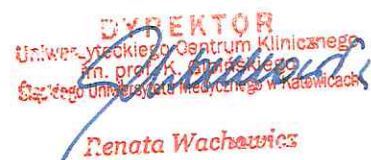 DYREKTOR
Uniwersyteckiego Centrum Klinicznego
im. prof. K. Gibińskiego
Śląskiego Uniwersytetu Medycznego w Katowicach
Renata Wachowicz